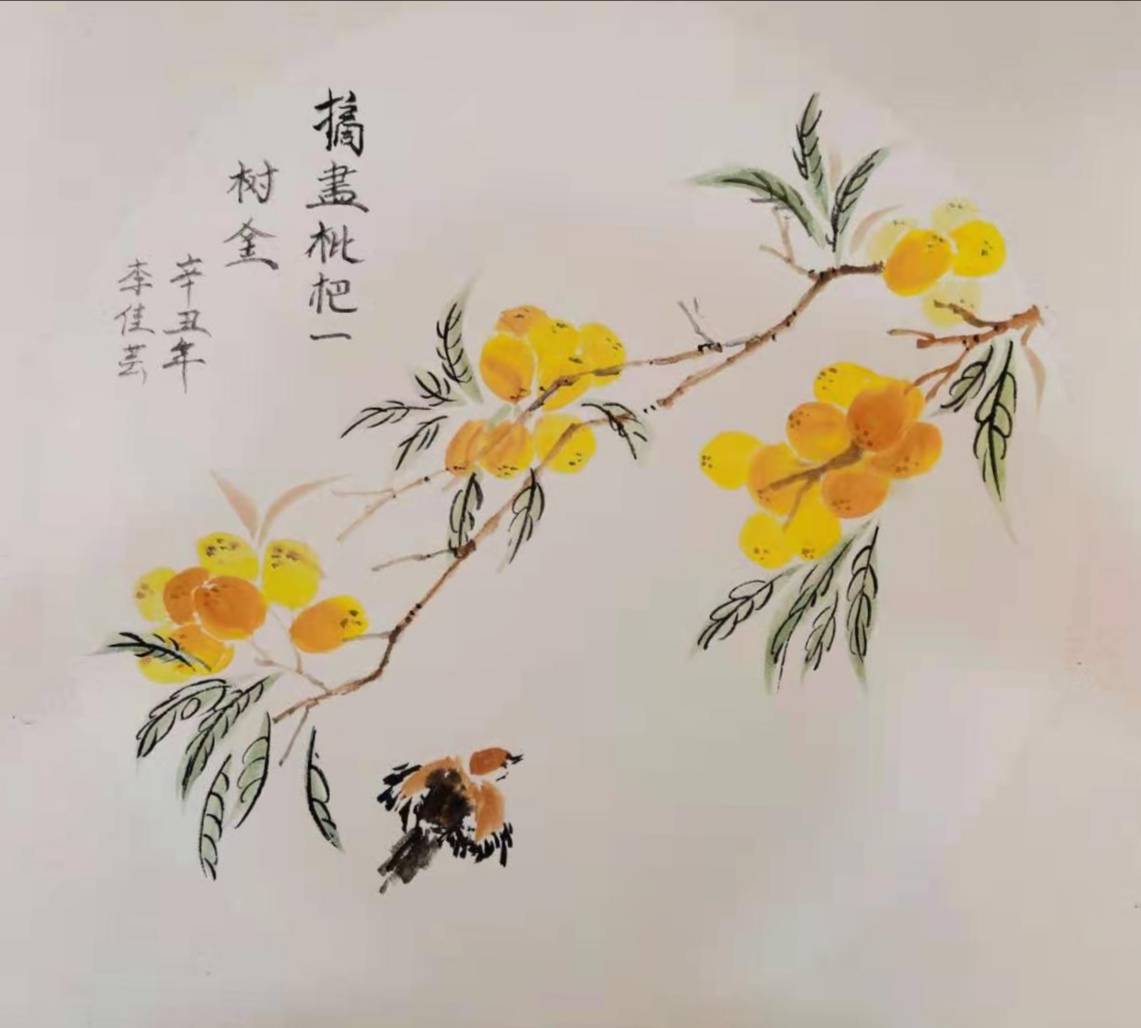 摘盡枇杷一
树金
辛丑年
李佳芸